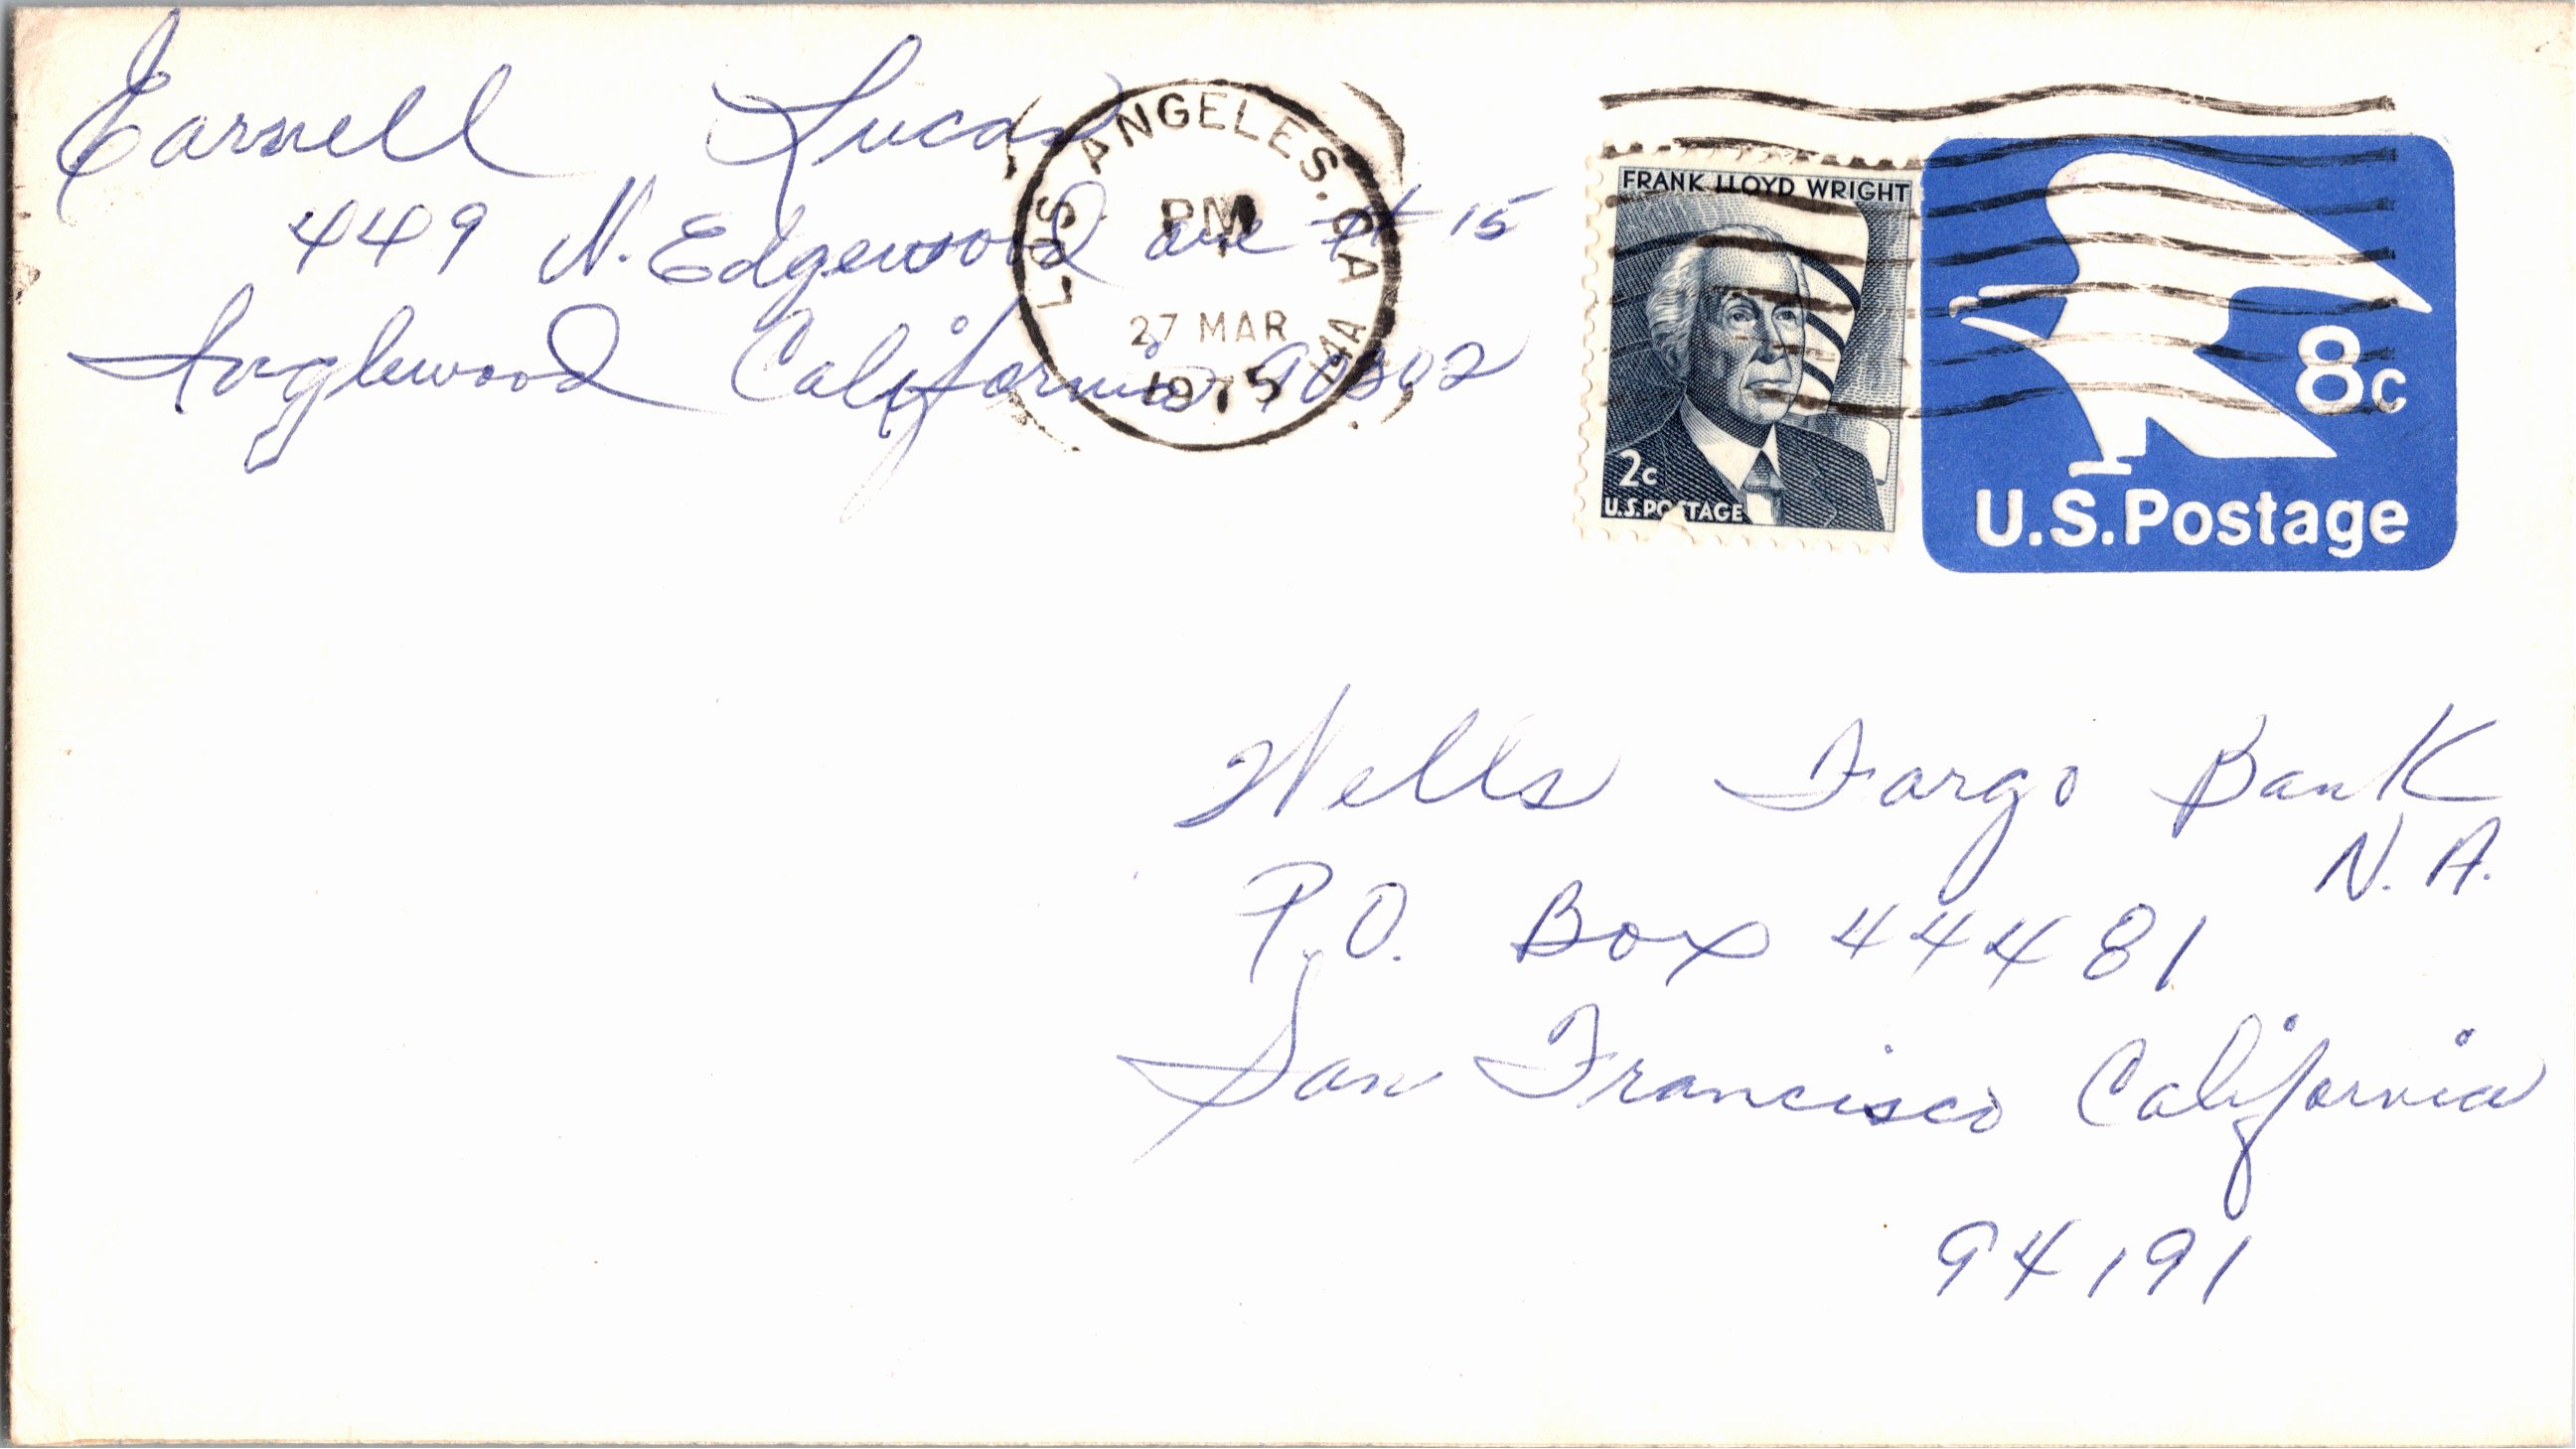 Earnell Lucas
449 N. Edgewood ave # 15
Inglewood California 90302
LOS ANGELES. CA
PM
27 MAR
1975
FRANK LLOYD WRIGHT
2c
U.S. POSTAGE
8c
U.S. Postage
Wells Fargo Bank
N. A.
P.O. Box 44481
San Francisco California
94191